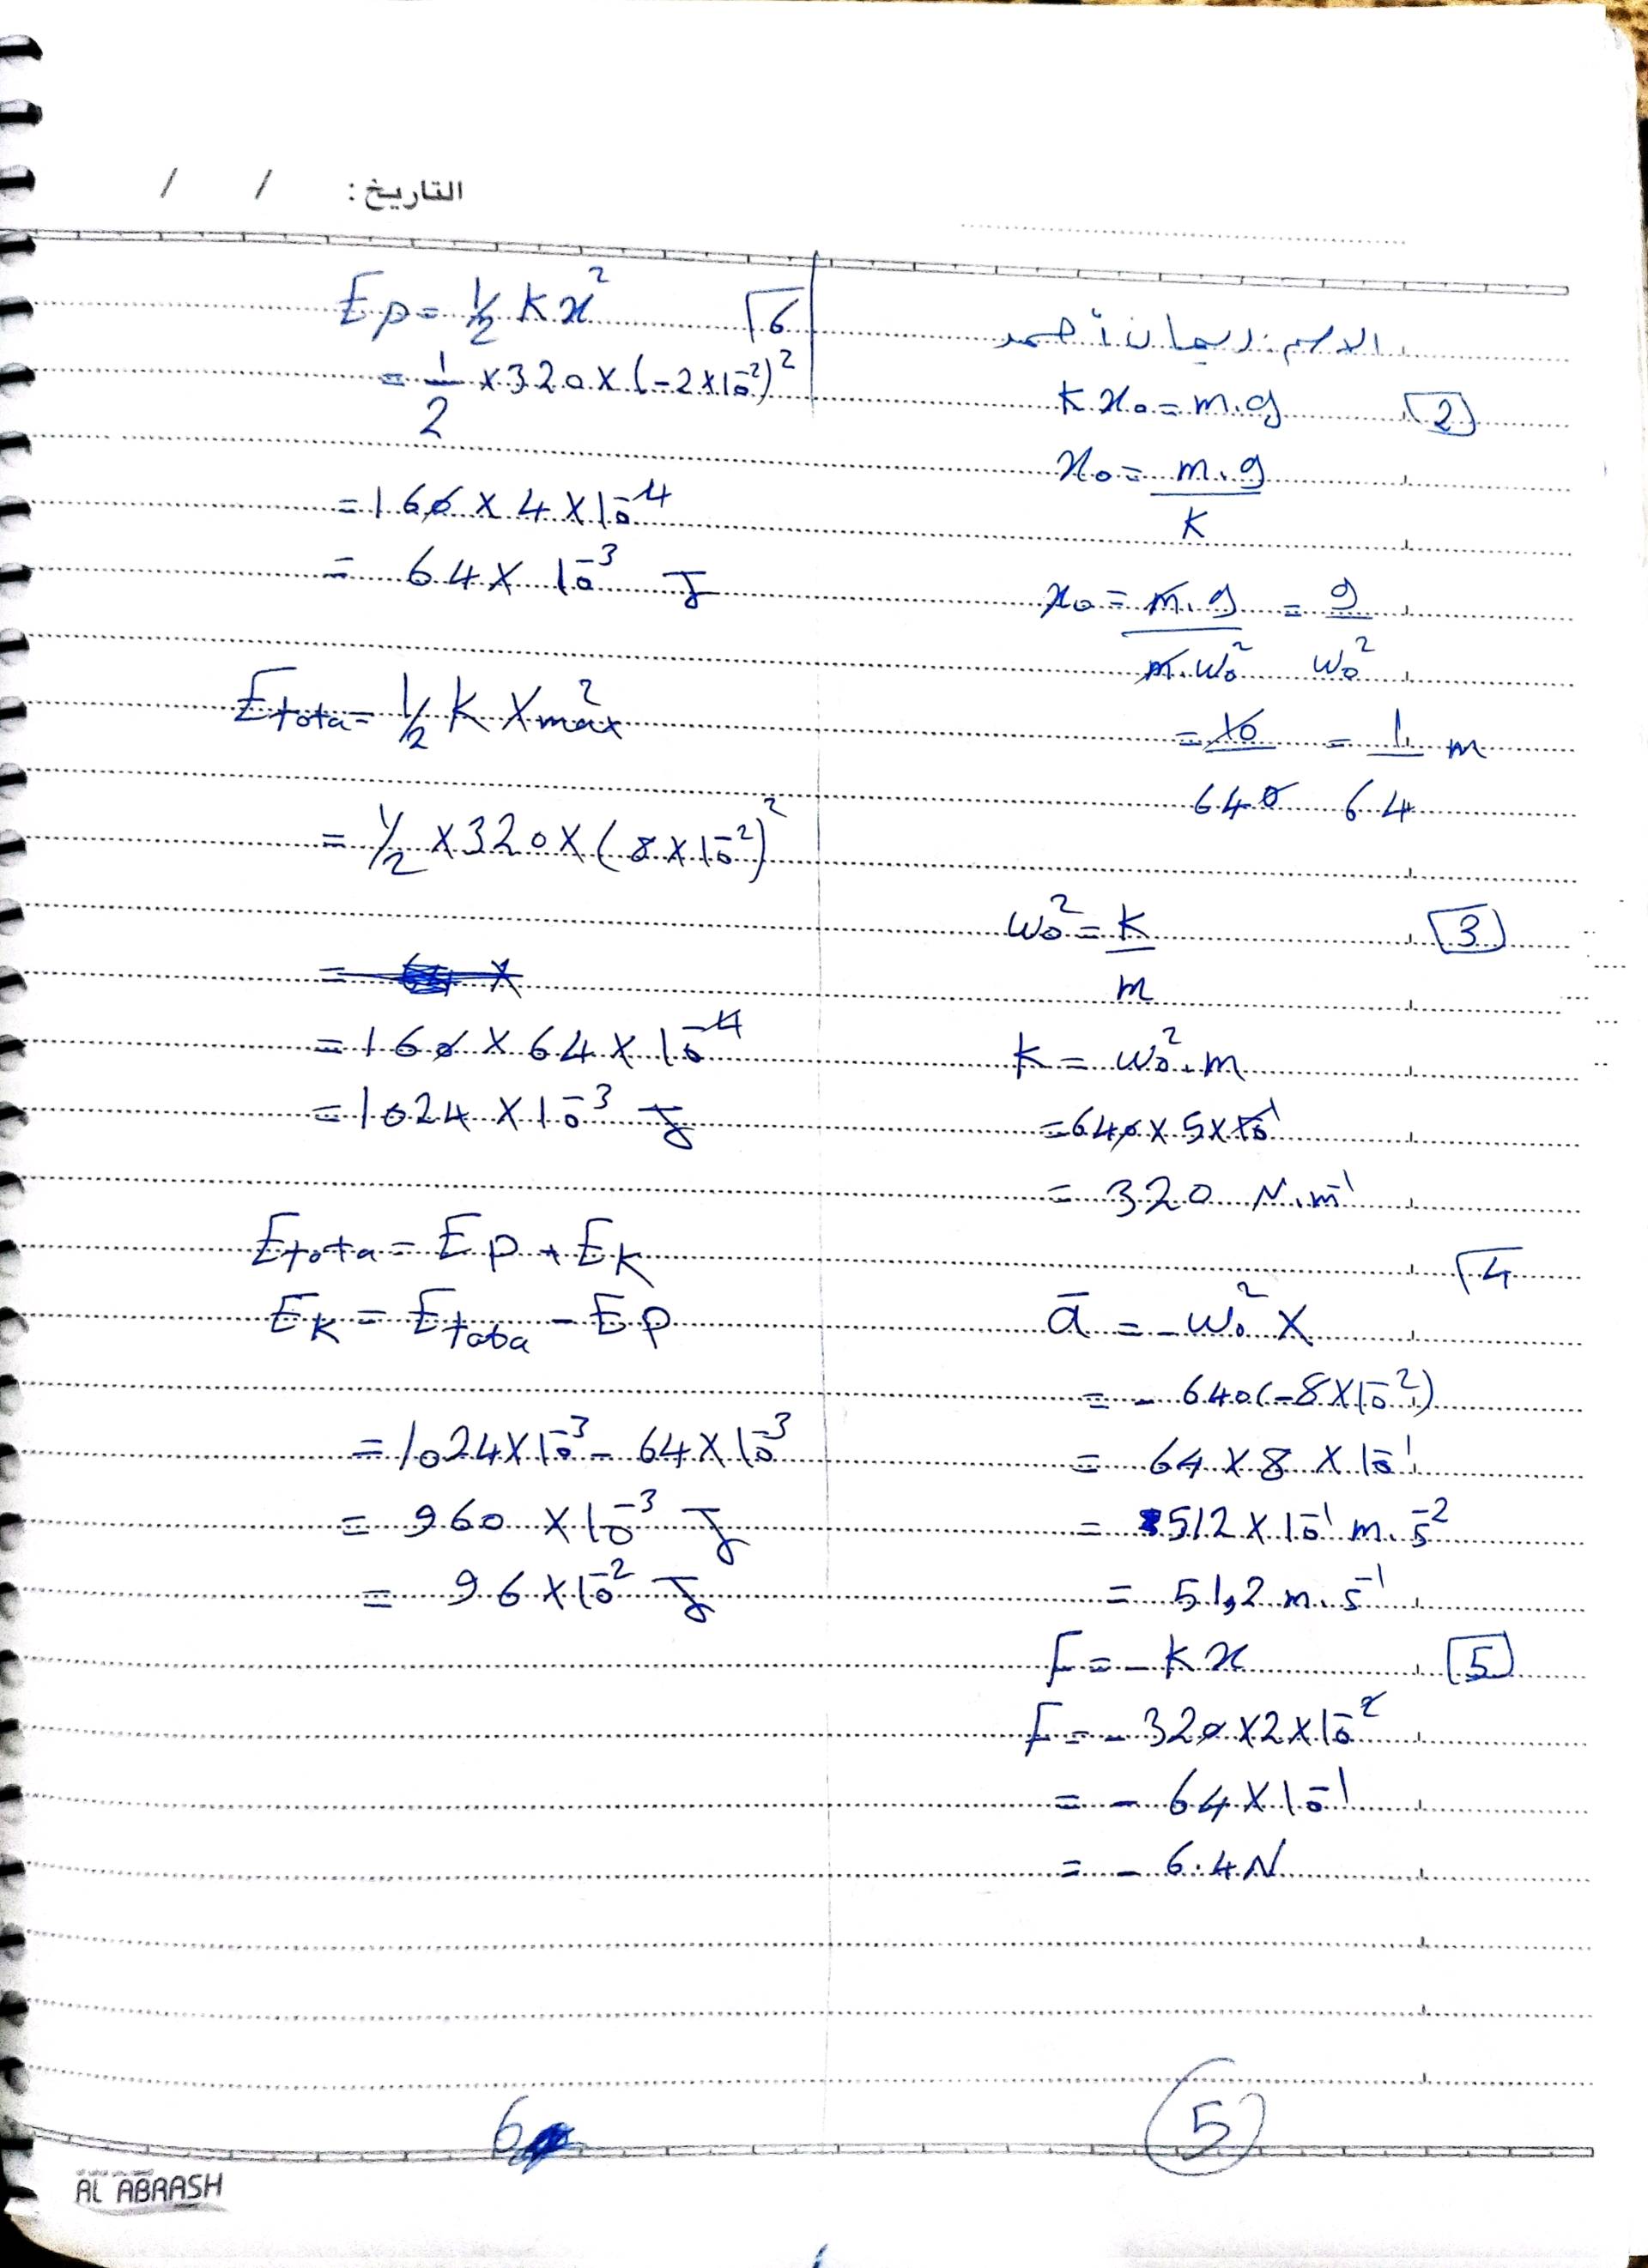 التاريخ: / /
الاسم: ريمان أحمد
2
k x₀ = m.g
x₀ = m.g / k
x₀ = m.g / m.ω₀² = g / ω₀²
= 10 / 640 = 1 / 64 m
3
ω₀² = k / m
k = ω₀².m
= 640 × 5 × 10⁻¹
= 320 N.m⁻¹
4
ā = -ω₀² x
= - 640(-8×10⁻²)
= 64 × 8 × 10⁻¹
= 512 × 10⁻¹ m.s⁻²
= 51,2 m.s⁻¹
5
F = - k x
F = - 320 × 2 × 10⁻²
= - 64 × 10⁻¹
= - 6.4 N
5
6
Ep = 1/2 k x²
= 1/2 × 320 × (-2×10⁻²)²
= 160 × 4 × 10⁻⁴
= 64 × 10⁻³ J
Etota = 1/2 k Xmax²
= 1/2 × 320 × (8×10⁻²)²
= 160 × 64 × 10⁻⁴
= 1024 × 10⁻³ J
Etota = Ep + Ek
Ek = Etota - Ep
= 1024×10⁻³ - 64×10⁻³
= 960 × 10⁻³ J
= 96 × 10⁻² J
6
AL ABRASH